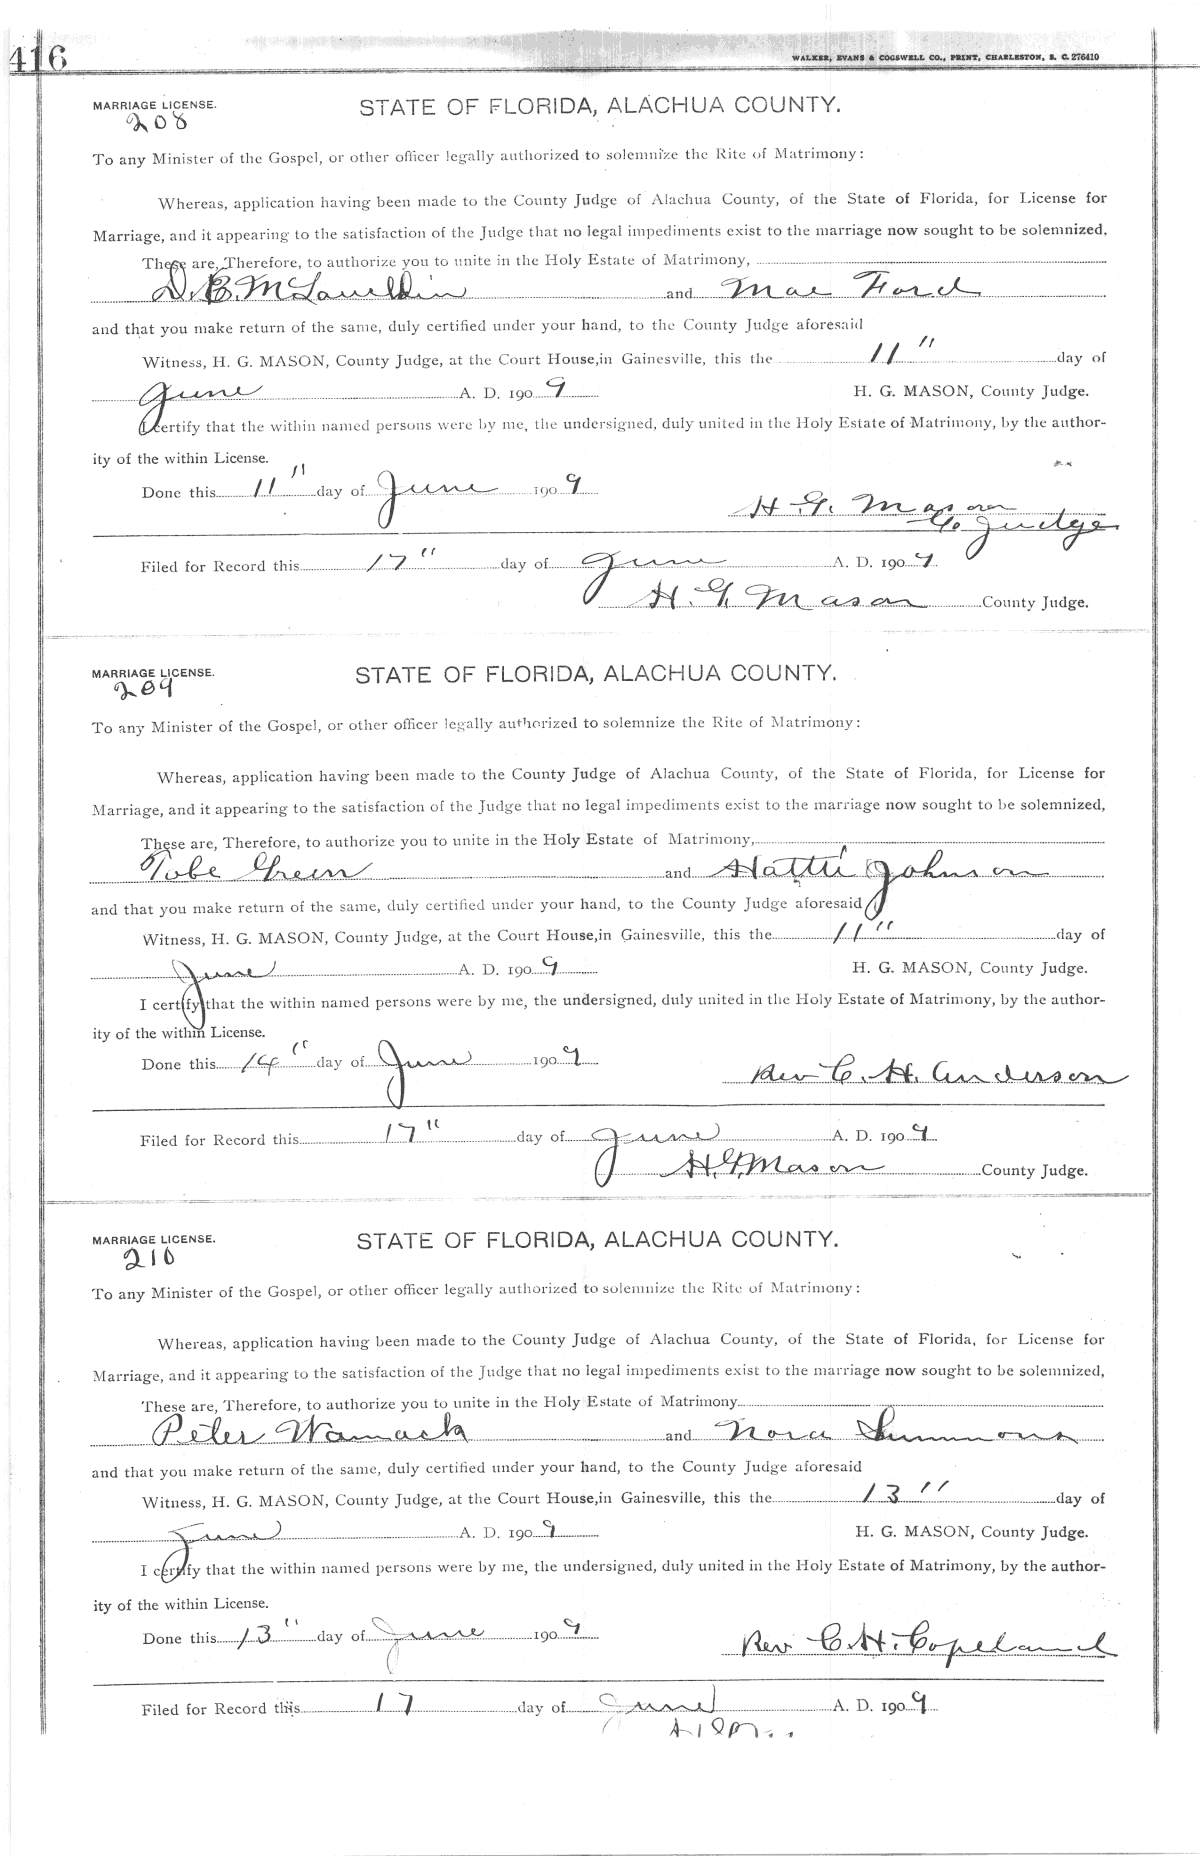 416
WALKER, EVANS & COGSWELL CO., PRINT, CHARLESTON, S. C. 276410
MARRIAGE LICENSE. STATE OF FLORIDA, ALACHUA COUNTY.
208
To any Minister of the Gospel, or other officer legally authorized to solemnize the Rite of Matrimony:
Whereas, application having been made to the County Judge of Alachua County, of the State of Florida, for License for
Marriage, and it appearing to the satisfaction of the Judge that no legal impediments exist to the marriage now sought to be solemnized,
These are, Therefore, to authorize you to unite in the Holy Estate of Matrimony,
D. B. McLauchlin and Mae Ford
and that you make return of the same, duly certified under your hand, to the County Judge aforesaid
Witness, H. G. MASON, County Judge, at the Court House, in Gainesville, this the 11" day of
June A. D. 1909 H. G. MASON, County Judge.
I certify that the within named persons were by me, the undersigned, duly united in the Holy Estate of Matrimony, by the author-
ity of the within License.
Done this 11" day of June 1909
H. G. Mason
Co Judge
Filed for Record this 17" day of June A. D. 1909
H. G. Mason County Judge.
MARRIAGE LICENSE. STATE OF FLORIDA, ALACHUA COUNTY.
209
To any Minister of the Gospel, or other officer legally authorized to solemnize the Rite of Matrimony:
Whereas, application having been made to the County Judge of Alachua County, of the State of Florida, for License for
Marriage, and it appearing to the satisfaction of the Judge that no legal impediments exist to the marriage now sought to be solemnized,
These are, Therefore, to authorize you to unite in the Holy Estate of Matrimony,
Tobe Green and Hattie Johnson
and that you make return of the same, duly certified under your hand, to the County Judge aforesaid
Witness, H. G. MASON, County Judge, at the Court House, in Gainesville, this the 11" day of
June A. D. 1909 H. G. MASON, County Judge.
I certify that the within named persons were by me, the undersigned, duly united in the Holy Estate of Matrimony, by the author-
ity of the within License.
Done this 14" day of June 1909
Rev C. H. Anderson
Filed for Record this 17" day of June A. D. 1909
H. G. Mason County Judge.
MARRIAGE LICENSE. STATE OF FLORIDA, ALACHUA COUNTY.
210
To any Minister of the Gospel, or other officer legally authorized to solemnize the Rite of Matrimony:
Whereas, application having been made to the County Judge of Alachua County, of the State of Florida, for License for
Marriage, and it appearing to the satisfaction of the Judge that no legal impediments exist to the marriage now sought to be solemnized,
These are, Therefore, to authorize you to unite in the Holy Estate of Matrimony
Peter Wamack and Nora Summons
and that you make return of the same, duly certified under your hand, to the County Judge aforesaid
Witness, H. G. MASON, County Judge, at the Court House, in Gainesville, this the 13" day of
June A. D. 1909 H. G. MASON, County Judge.
I certify that the within named persons were by me, the undersigned, duly united in the Holy Estate of Matrimony, by the author-
ity of the within License.
Done this 13" day of June 1909
Rev C. H. Copeland
Filed for Record this 17 day of June A. D. 1909